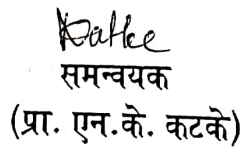 Katke
समन्वयक
(प्रा. एन.के. कटके)